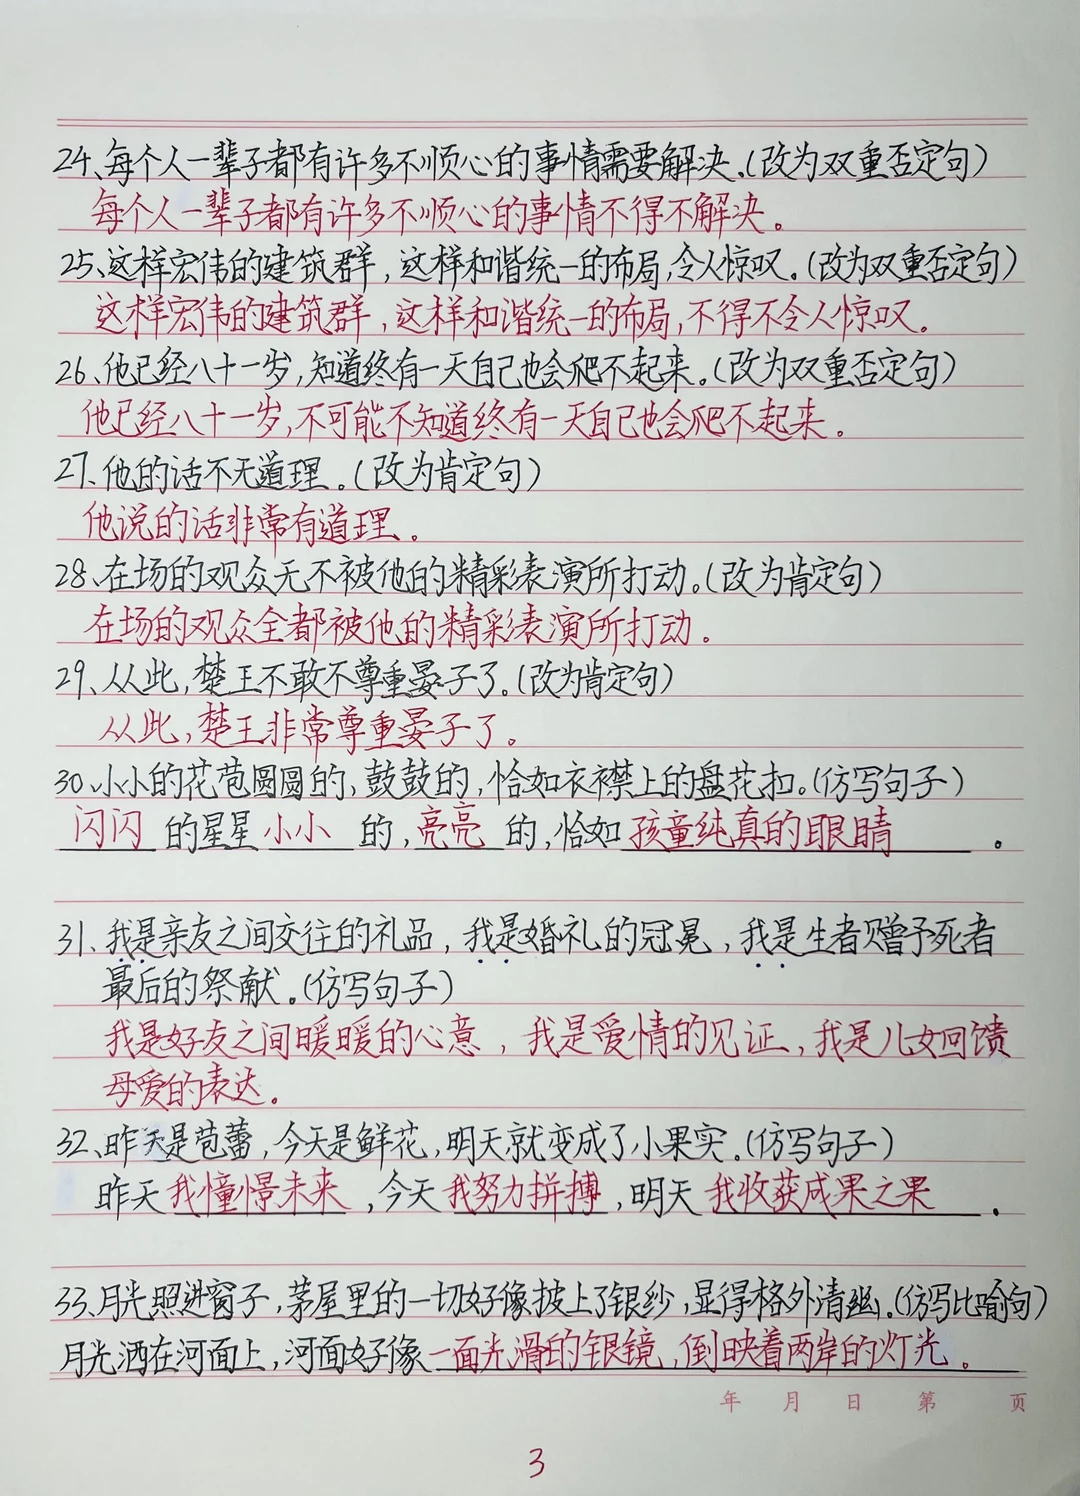 24、每个人一辈子都有许多不顺心的事情需要解决。(改为双重否定句)
每个人一辈子都有许多不顺心的事情不得不解决。
25、这样宏伟的建筑群，这样和谐统一的布局，令人惊叹。(改为双重否定句)
这样宏伟的建筑群，这样和谐统一的布局，不得不令人惊叹。
26、他已经八十一岁，知道终有一天自己也会爬不起来。(改为双重否定句)
他已经八十一岁，不可能不知道终有一天自己也会爬不起来。
27、他的话不无道理。(改为肯定句)
他说的话非常有道理。
28、在场的观众无不被他的精彩表演所打动。(改为肯定句)
在场的观众全都被他的精彩表演所打动。
29、从此，楚王不敢不尊重晏子了。(改为肯定句)
从此，楚王非常尊重晏子了。
30、小小的花苞圆圆的，鼓鼓的，恰如衣襟上的盘花扣。(仿写句子)
闪闪的星星小小的，亮亮的，恰如孩童纯真的眼睛。
31、我是亲友之间交往的礼品，我是婚礼的冠冕，我是生者赠予死者
最后的祭献。(仿写句子)
我是好友之间暖暖的心意，我是爱情的见证，我是儿女回馈
母爱的表达。
32、昨天是苞蕾，今天是鲜花，明天就变成了小果实。(仿写句子)
昨天我憧憬未来，今天我努力拼搏，明天我收获成果之果。
33、月光照进窗子，茅屋里的一切好像披上了银纱，显得格外清幽。(仿写比喻句)
月光洒在河面上，河面好像一面光滑的银镜，倒映着两岸的灯光。
年 月 日 第 页
3